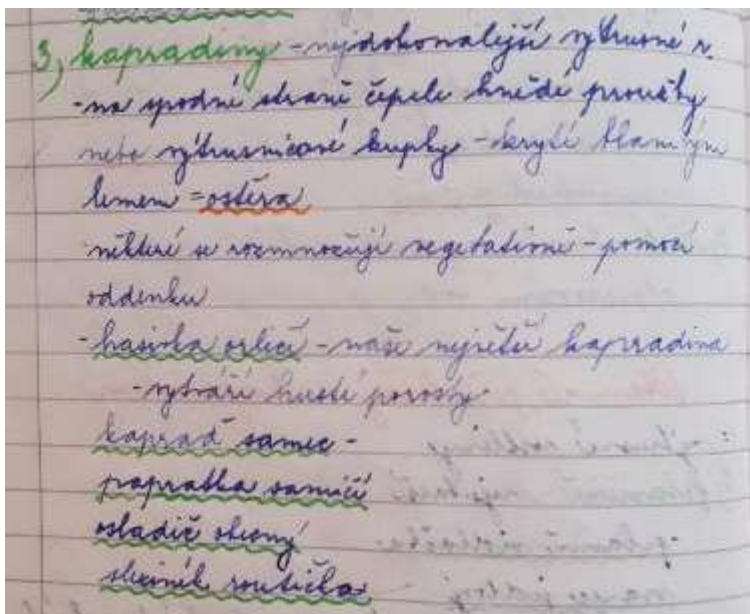 3, kapradiny - nejdokonalejší výtrusné r.
- na spodní straně čepele hnědé proužky
nebo výtrusnicové kupky - kryté blanitým
lemem = ostěra
některé se rozmnožují vegetativně - pomocí
oddenku
- hasivka orličí - naše největší kapradina
- vytváří husté porosty
kapraď samec -
papratka samičí
osladič obecný
sleziník routička